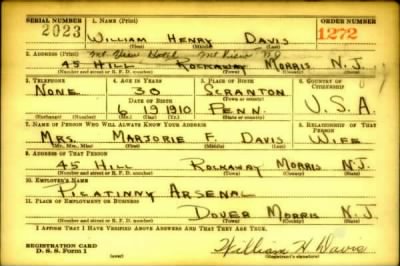 SERIAL NUMBER 1. NAME (Print) ORDER NUMBER
2023 WILLIAM HENRY DAVIS 1272
(First) (Middle) (Last)
2. ADDRESS (Print) Mt View Hotel Mt View NJ
45 HILL ROCKAWAY MORRIS N.J.
(Number and street or R. F. D. number) (Town) (County) (State)
3. TELEPHONE 4. AGE IN YEARS 5. PLACE OF BIRTH 6. COUNTRY OF CITIZENSHIP
NONE 30 SCRANTON
DATE OF BIRTH (Town or county)
6 19 1910 PENN. U.S.A.
(Exchange) (Number) (Mo.) (Day) (Yr.) (State or country)
7. NAME OF PERSON WHO WILL ALWAYS KNOW YOUR ADDRESS 8. RELATIONSHIP OF THAT PERSON
MRS. MARJORIE F. DAVIS WIFE
(Mr., Mrs., Miss) (First) (Middle) (Last)
9. ADDRESS OF THAT PERSON
45 HILL ROCKAWAY MORRIS N.J.
(Number and street or R. F. D. number) (Town) (County) (State)
10. EMPLOYER'S NAME
PICATINNY ARSENAL
11. PLACE OF EMPLOYMENT OR BUSINESS
DOVER MORRIS N.J.
(Number and street or R. F. D. number) (Town) (County) (State)
I AFFIRM THAT I HAVE VERIFIED ABOVE ANSWERS AND THAT THEY ARE TRUE.
REGISTRATION CARD
D. S. S. Form 1 (over) William H. Davis
(Registrant's signature)